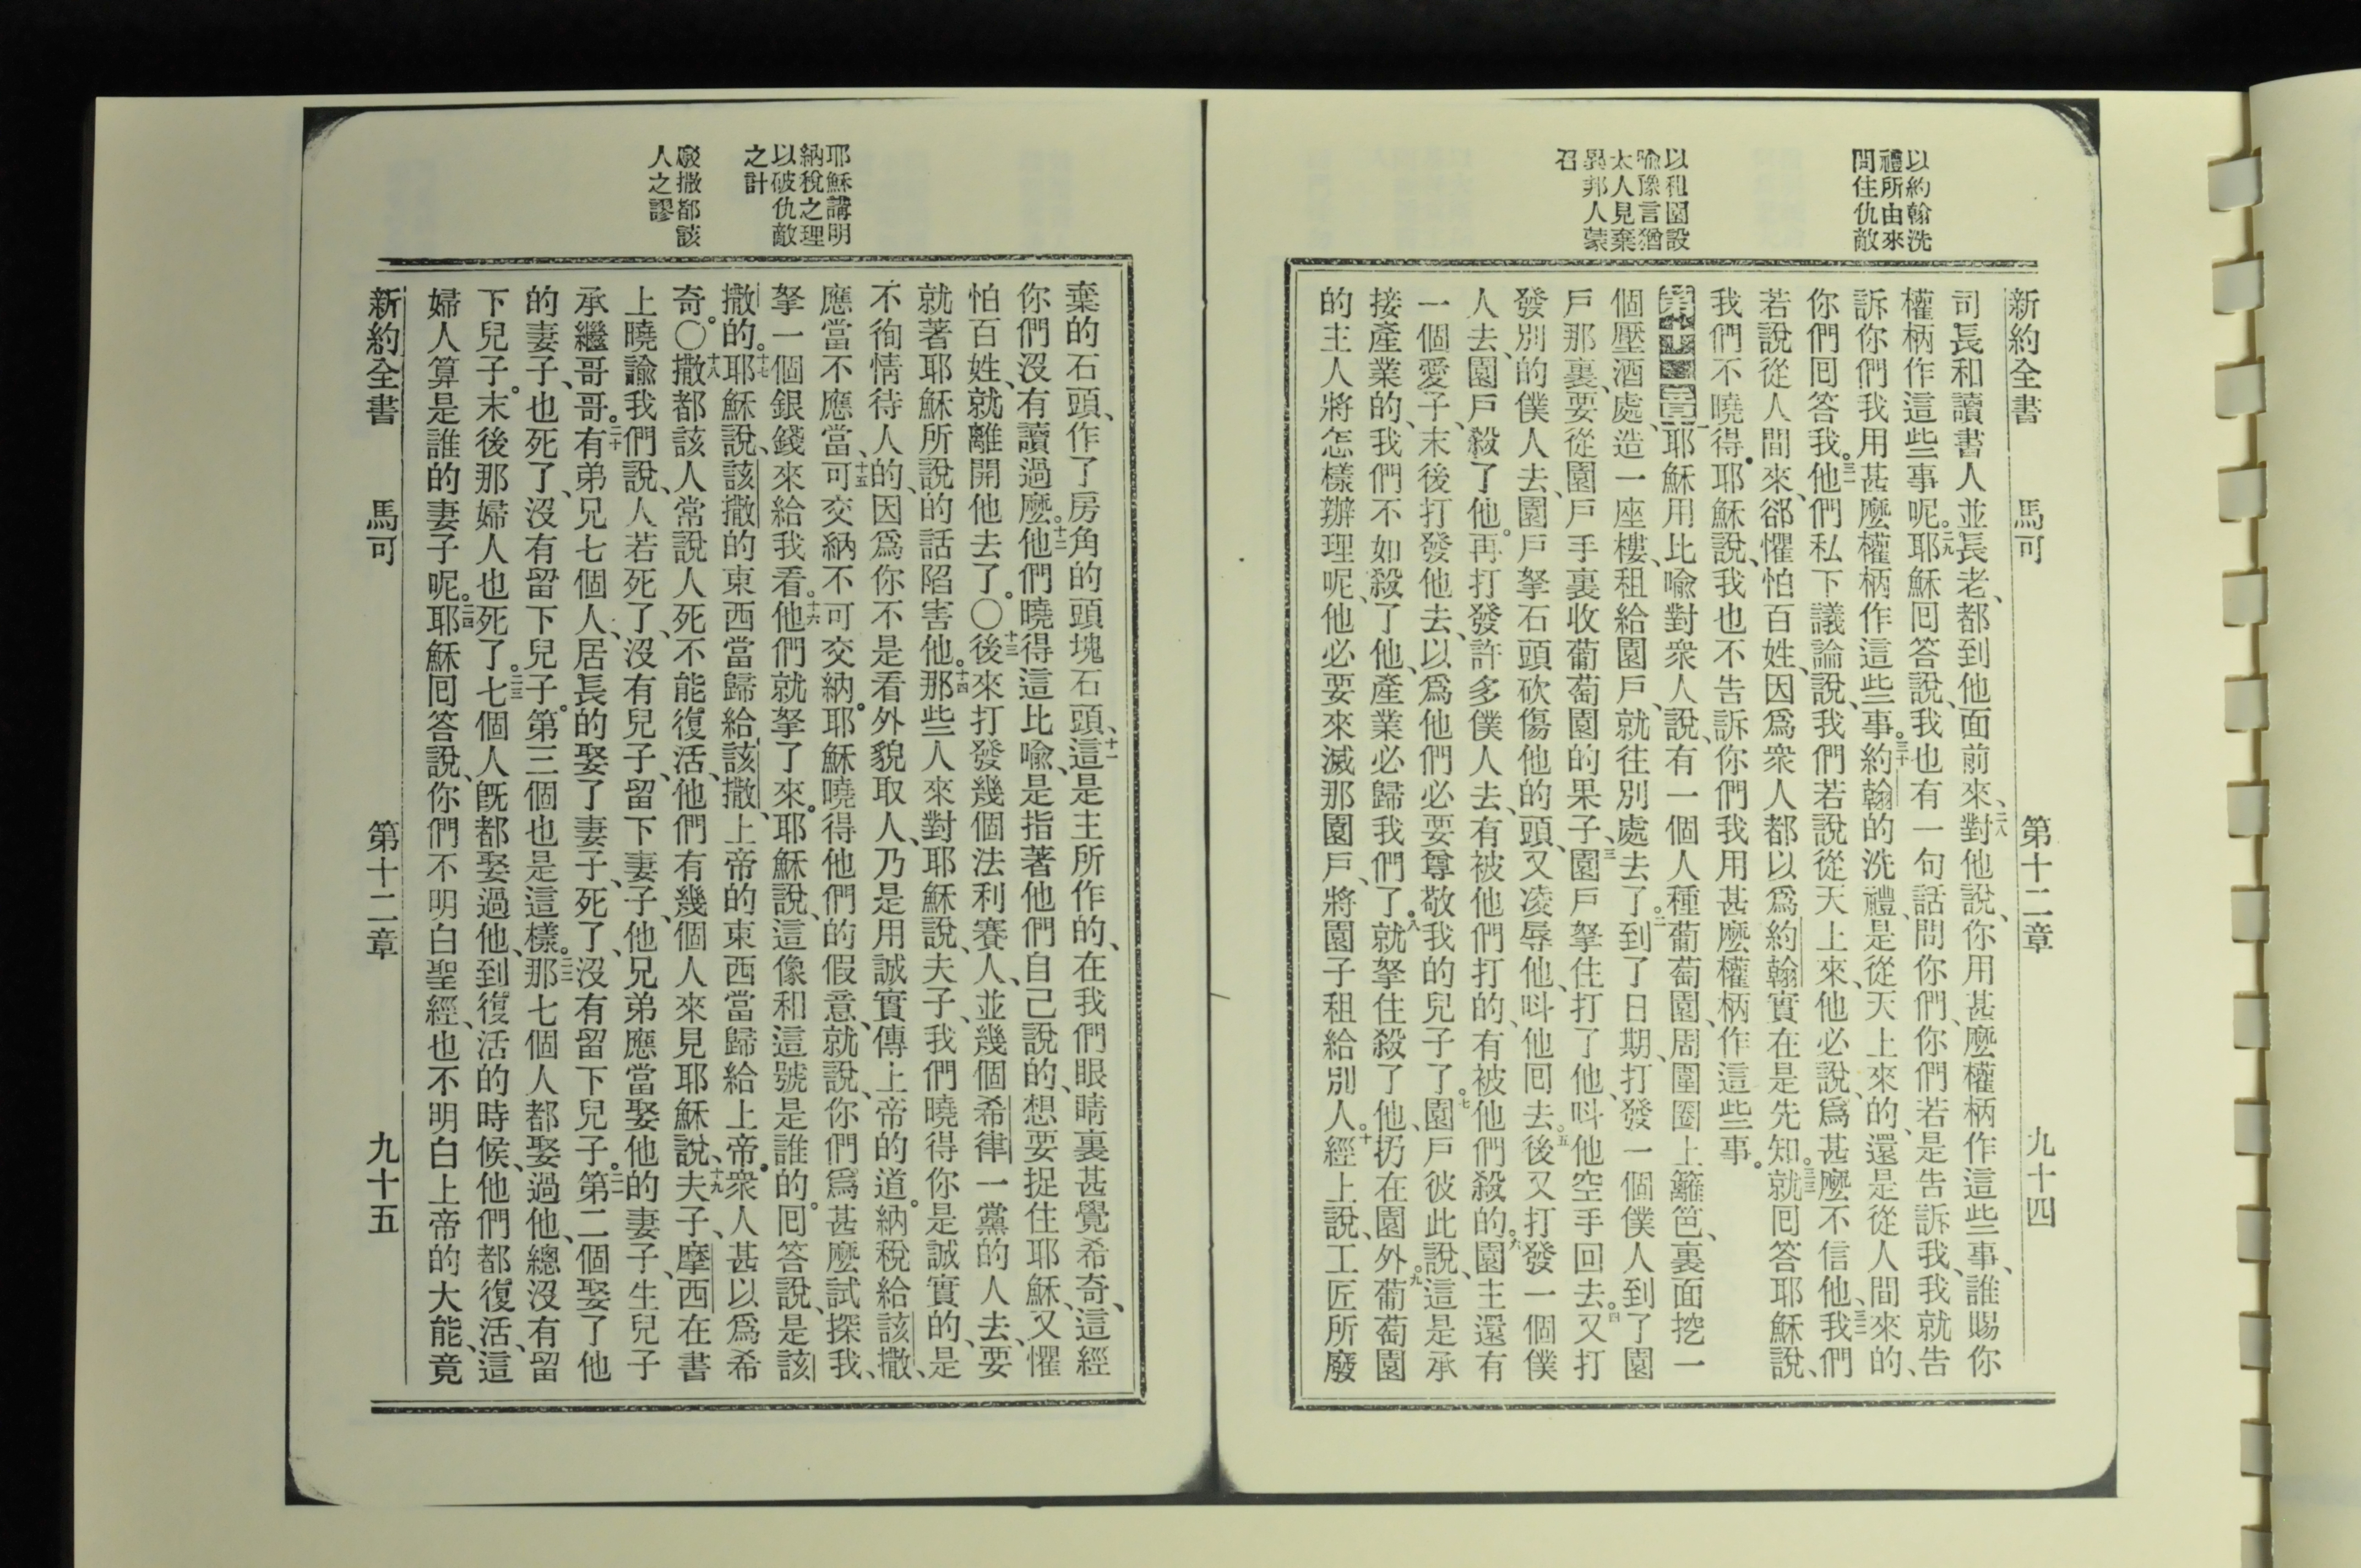 以約翰洗
禮所由來
問住仇敵
以租園設
喻豫言猶
太人見棄
異邦人蒙
召
新約全書　馬可　第十二章　九十四
司長和讀書人並長老、都到他面前來、二八對他說、你用甚麼權柄作這些事、誰賜你
權柄作這些事呢。二九耶穌回答說、我也有一句話問你們、你們若是告訴我、我就告
訴你們我用甚麼權柄作這些事。三十約翰的洗禮、是從天上來的、還是從人間來的、
你們回答我。三一他們私下議論說、我們若說從天上來、他必說、爲甚麼不信他、三二我們
若說從人間來、卻懼怕百姓、因爲衆人都以爲約翰實在是先知。三三就回答耶穌說、
我們不曉得。耶穌說、我也不告訴你們我用甚麼權柄作這些事。
第十二章一耶穌用比喻對衆人說、有一個人種葡萄園、周圍圈上籬笆、裏面挖一
個壓酒處、造一座樓、租給園戶、就往別處去了。二到了日期、打發一個僕人到了園
戶那裏、要從園戶手裏收葡萄園的果子、三園戶拏住打了他、呌他空手回去。四又打
發別的僕人去、園戶拏石頭砍傷他的頭、又凌辱他、呌他回去。五後又打發一個僕
人去、園戶殺了他。再打發許多僕人去、有被他們打的、有被他們殺的。六園主還有
一個愛子、末後打發他去、以爲他們必要尊敬我的兒子了。七園戶彼此說、這是承
接產業的、我們不如殺了他、產業必歸我們了。八就拏住殺了他、扔在園外。九葡萄園
的主人將怎樣辦理呢、他必要來滅那園戶、將園子租給別人。十經上說、工匠所廢
耶穌講明
納稅之理
以破仇敵
之計
駁撒都該
人之謬
棄的石頭、作了房角的頭塊石頭、十一這是主所作的、在我們眼睛裏甚覺希奇、這經
你們沒有讀過麼。十二他們曉得這比喻、是指著他們自己說的、想要捉住耶穌、又懼
怕百姓、就離開他去了。〇十三後來打發幾個法利賽人、並幾個希律一黨的人去、要
就著耶穌所說的話陷害他。十四那些人來對耶穌說、夫子、我們曉得你是誠實的、是
不徇情待人的、因爲你不是看外貌取人、乃是用誠實傳上帝的道。納稅給該撒、
應當不應當、十五可交納不可交納。耶穌曉得他們的假意、就說、你們爲甚麼試探我、
拏一個銀錢來給我看。十六他們就拏了來。耶穌說、這像和這號是誰的。回答說、是該
撒的。十七耶穌說、該撒的東西當歸給該撒、上帝的東西當歸給上帝。衆人甚以爲希
奇。〇十八撒都該人常說人死不能復活、他們有幾個人來見耶穌說、十九夫子、摩西在書
上曉諭我們說、人若死了、沒有兒子、留下妻子、他兄弟應當娶他的妻子、生兒子
承繼哥哥。二十有弟兄七個人、居長的娶了妻子、死了、沒有留下兒子。二一第二個娶了他
的妻子、也死了、沒有留下兒子。第三個也是這樣。二二那七個人都娶過他、總沒有留
下兒子。末後那婦人也死了。二三七個人旣都娶過他、到復活的時候、他們都復活、這
婦人算是誰的妻子呢。二四耶穌回答說、你們不明白聖經、也不明白上帝的大能、竟
新約全書　馬可　第十二章　九十五